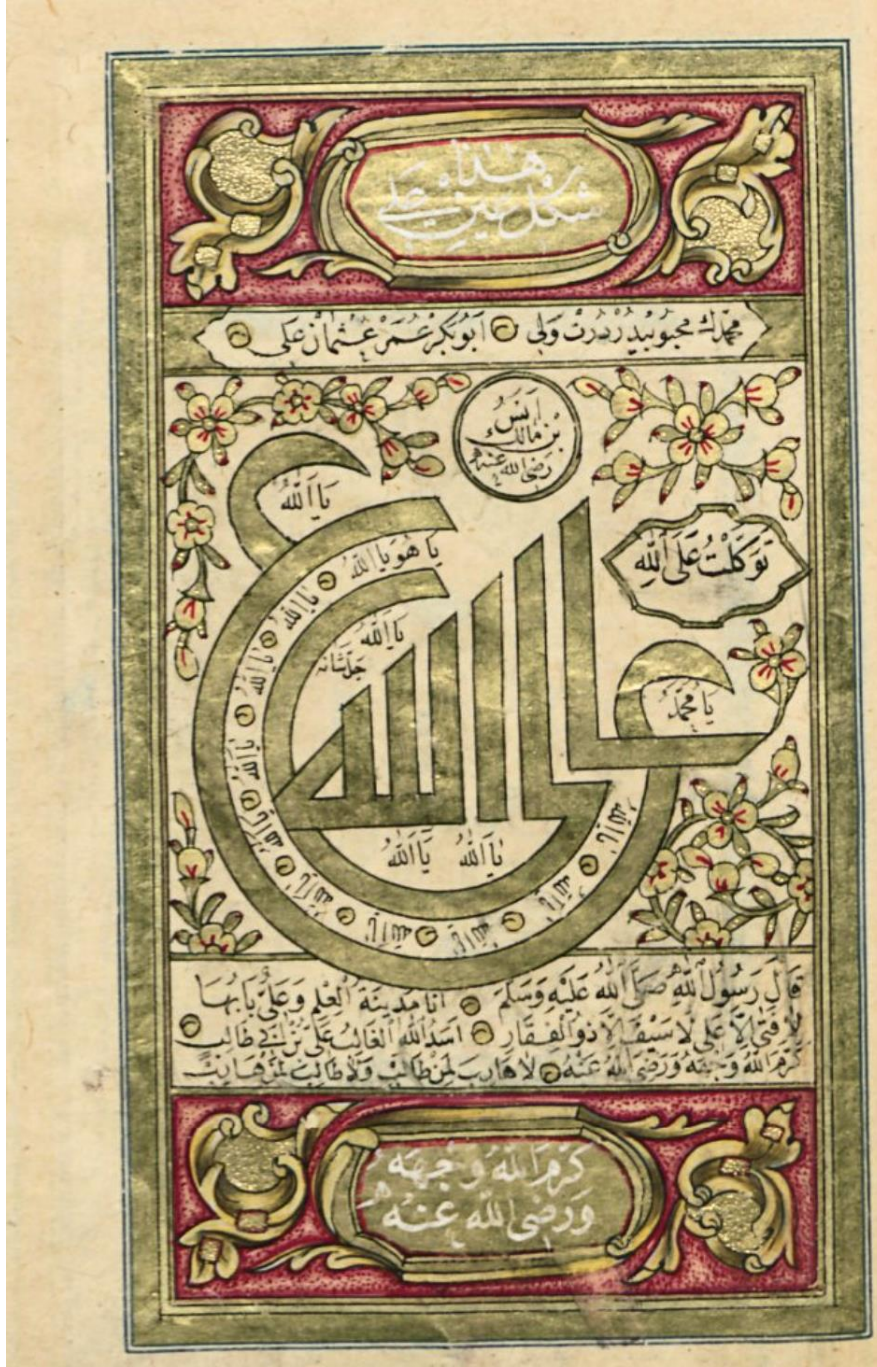 هذا
شكل عين علي
محمدك محبوبيدر درت ولى ابو بكر عمر عثمان علي
انس
بن مالك
رضى الله عنه
يا الله
توكلت على الله
يا هو يا الله
يا الله
يا الله
يا الله
يا الله
يا الله
يا الله
يا الله
يا الله
يا الله
يا الله
يا الله
جل شانه
يا محمد
يا الله يا الله
قال رسول الله صلى الله عليه وسلم انا مدينة العلم وعلى بابها
لا فتى الا على لا سيف الا ذو الفقار اسد الله الغالب على بن ابى طالب
كرم الله وجهه ورضى الله عنه لا هارب من طالب ولا طالب من هارب
كرم الله وجهه
ورضى الله عنه